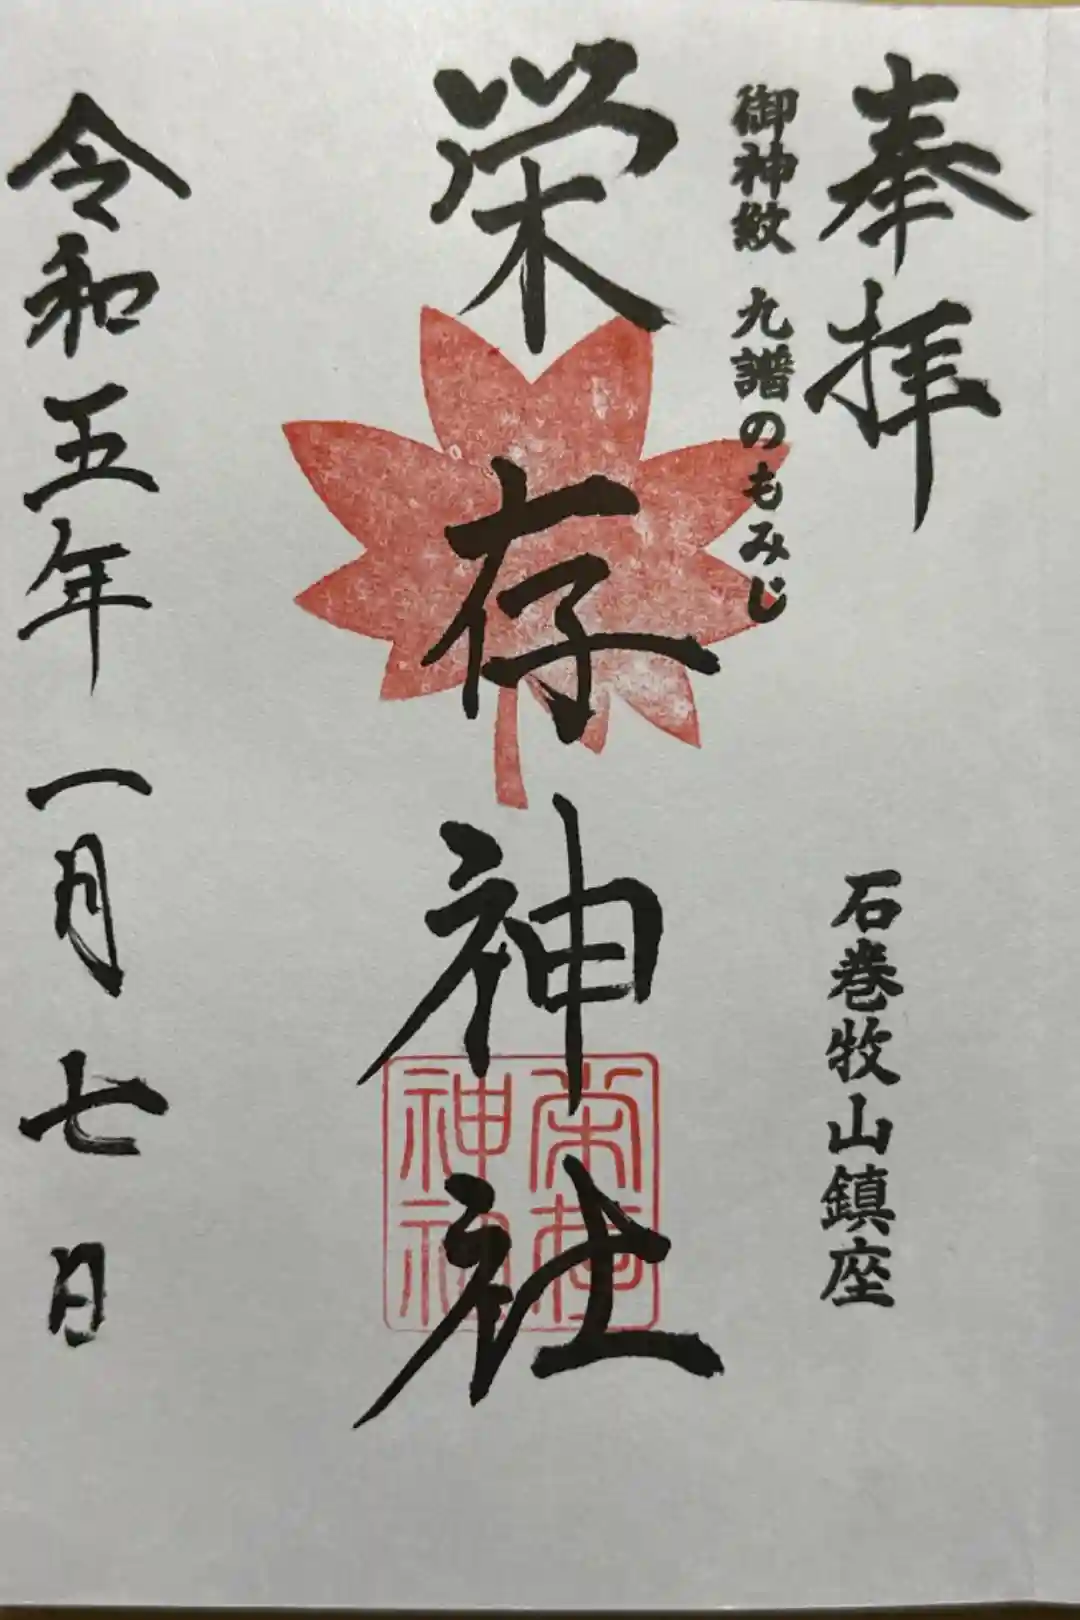 奉拝
石巻牧山鎮座
御神紋 九譜のもみじ
栄存神社
令和五年 一月七日